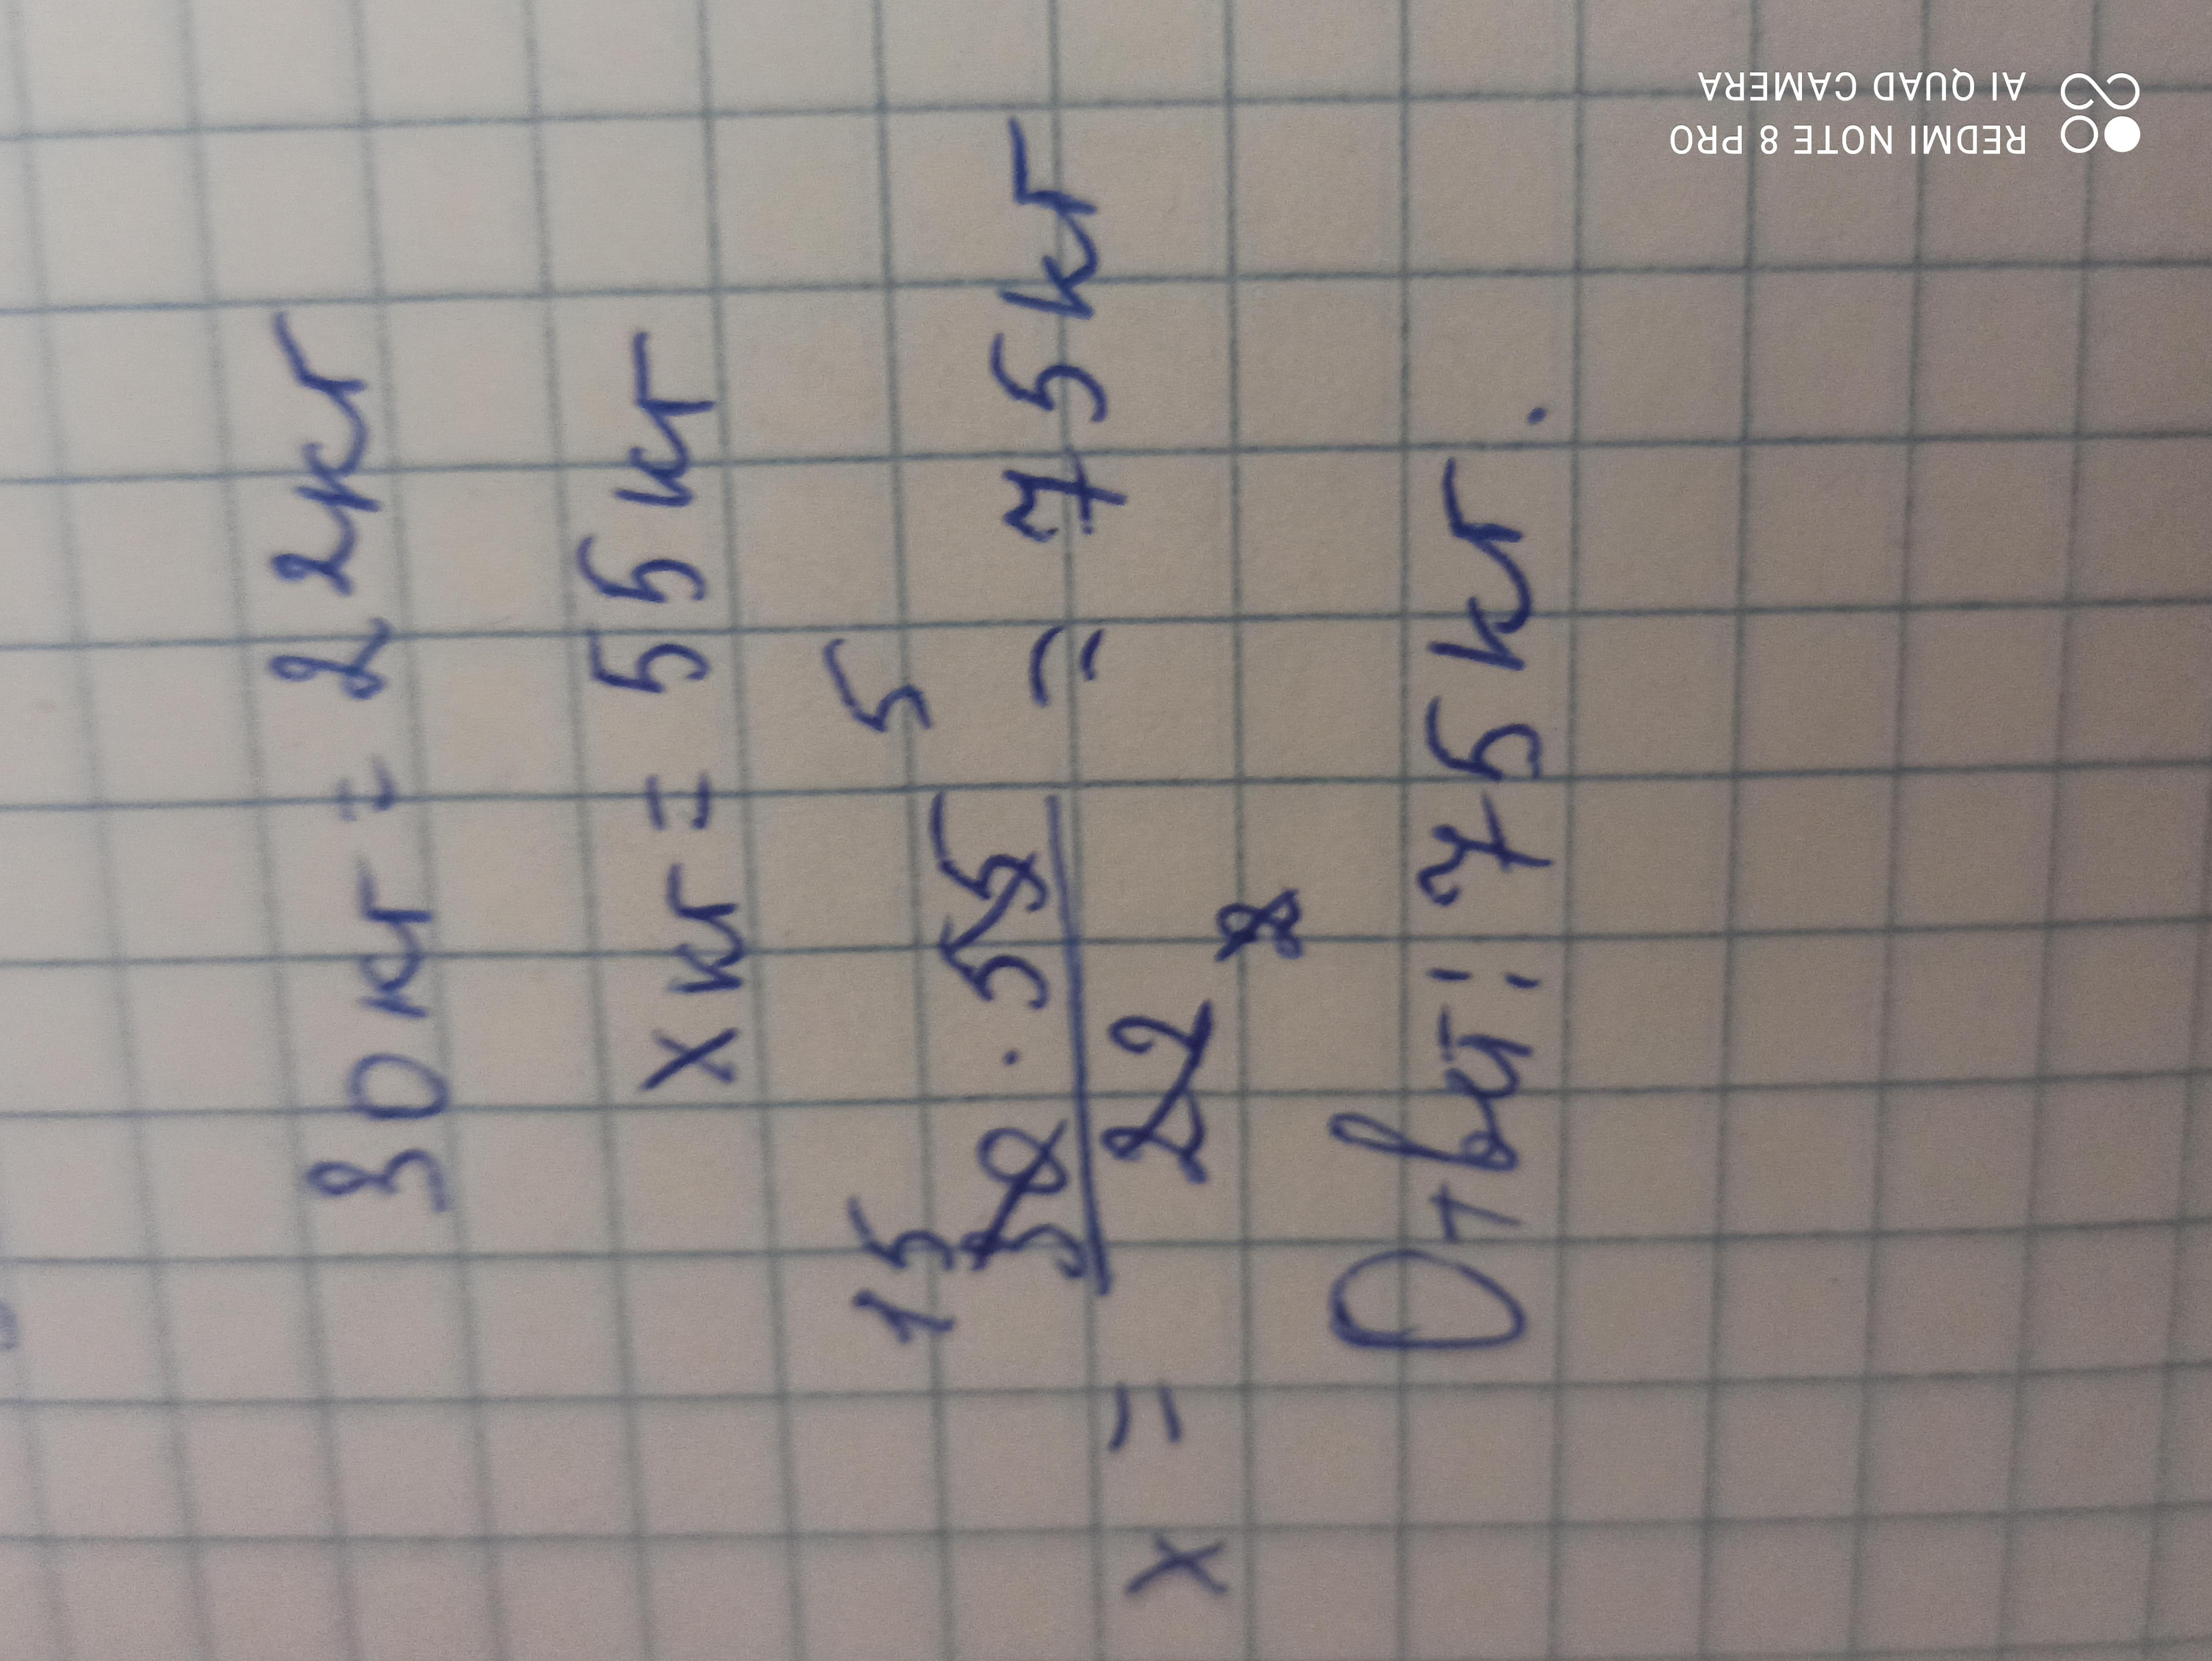 30 кг = 22кг
х кг = 55 кг
15 5
х = 30 · 55 / 22 = 75 кг
2
Ответ: 75 кг.
REDMI NOTE 8 PRO
AI QUAD CAMERA